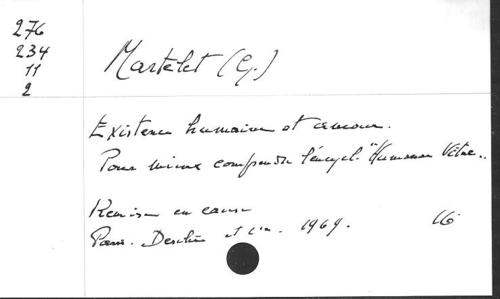 276
234
11
2
Martelet (G.)
Existence humaine et amour.
Pour mieux comprendre l'encycl. "Humanae Vitae..
Remise en cause
Paris. Desclée et Cie. 1969. 16